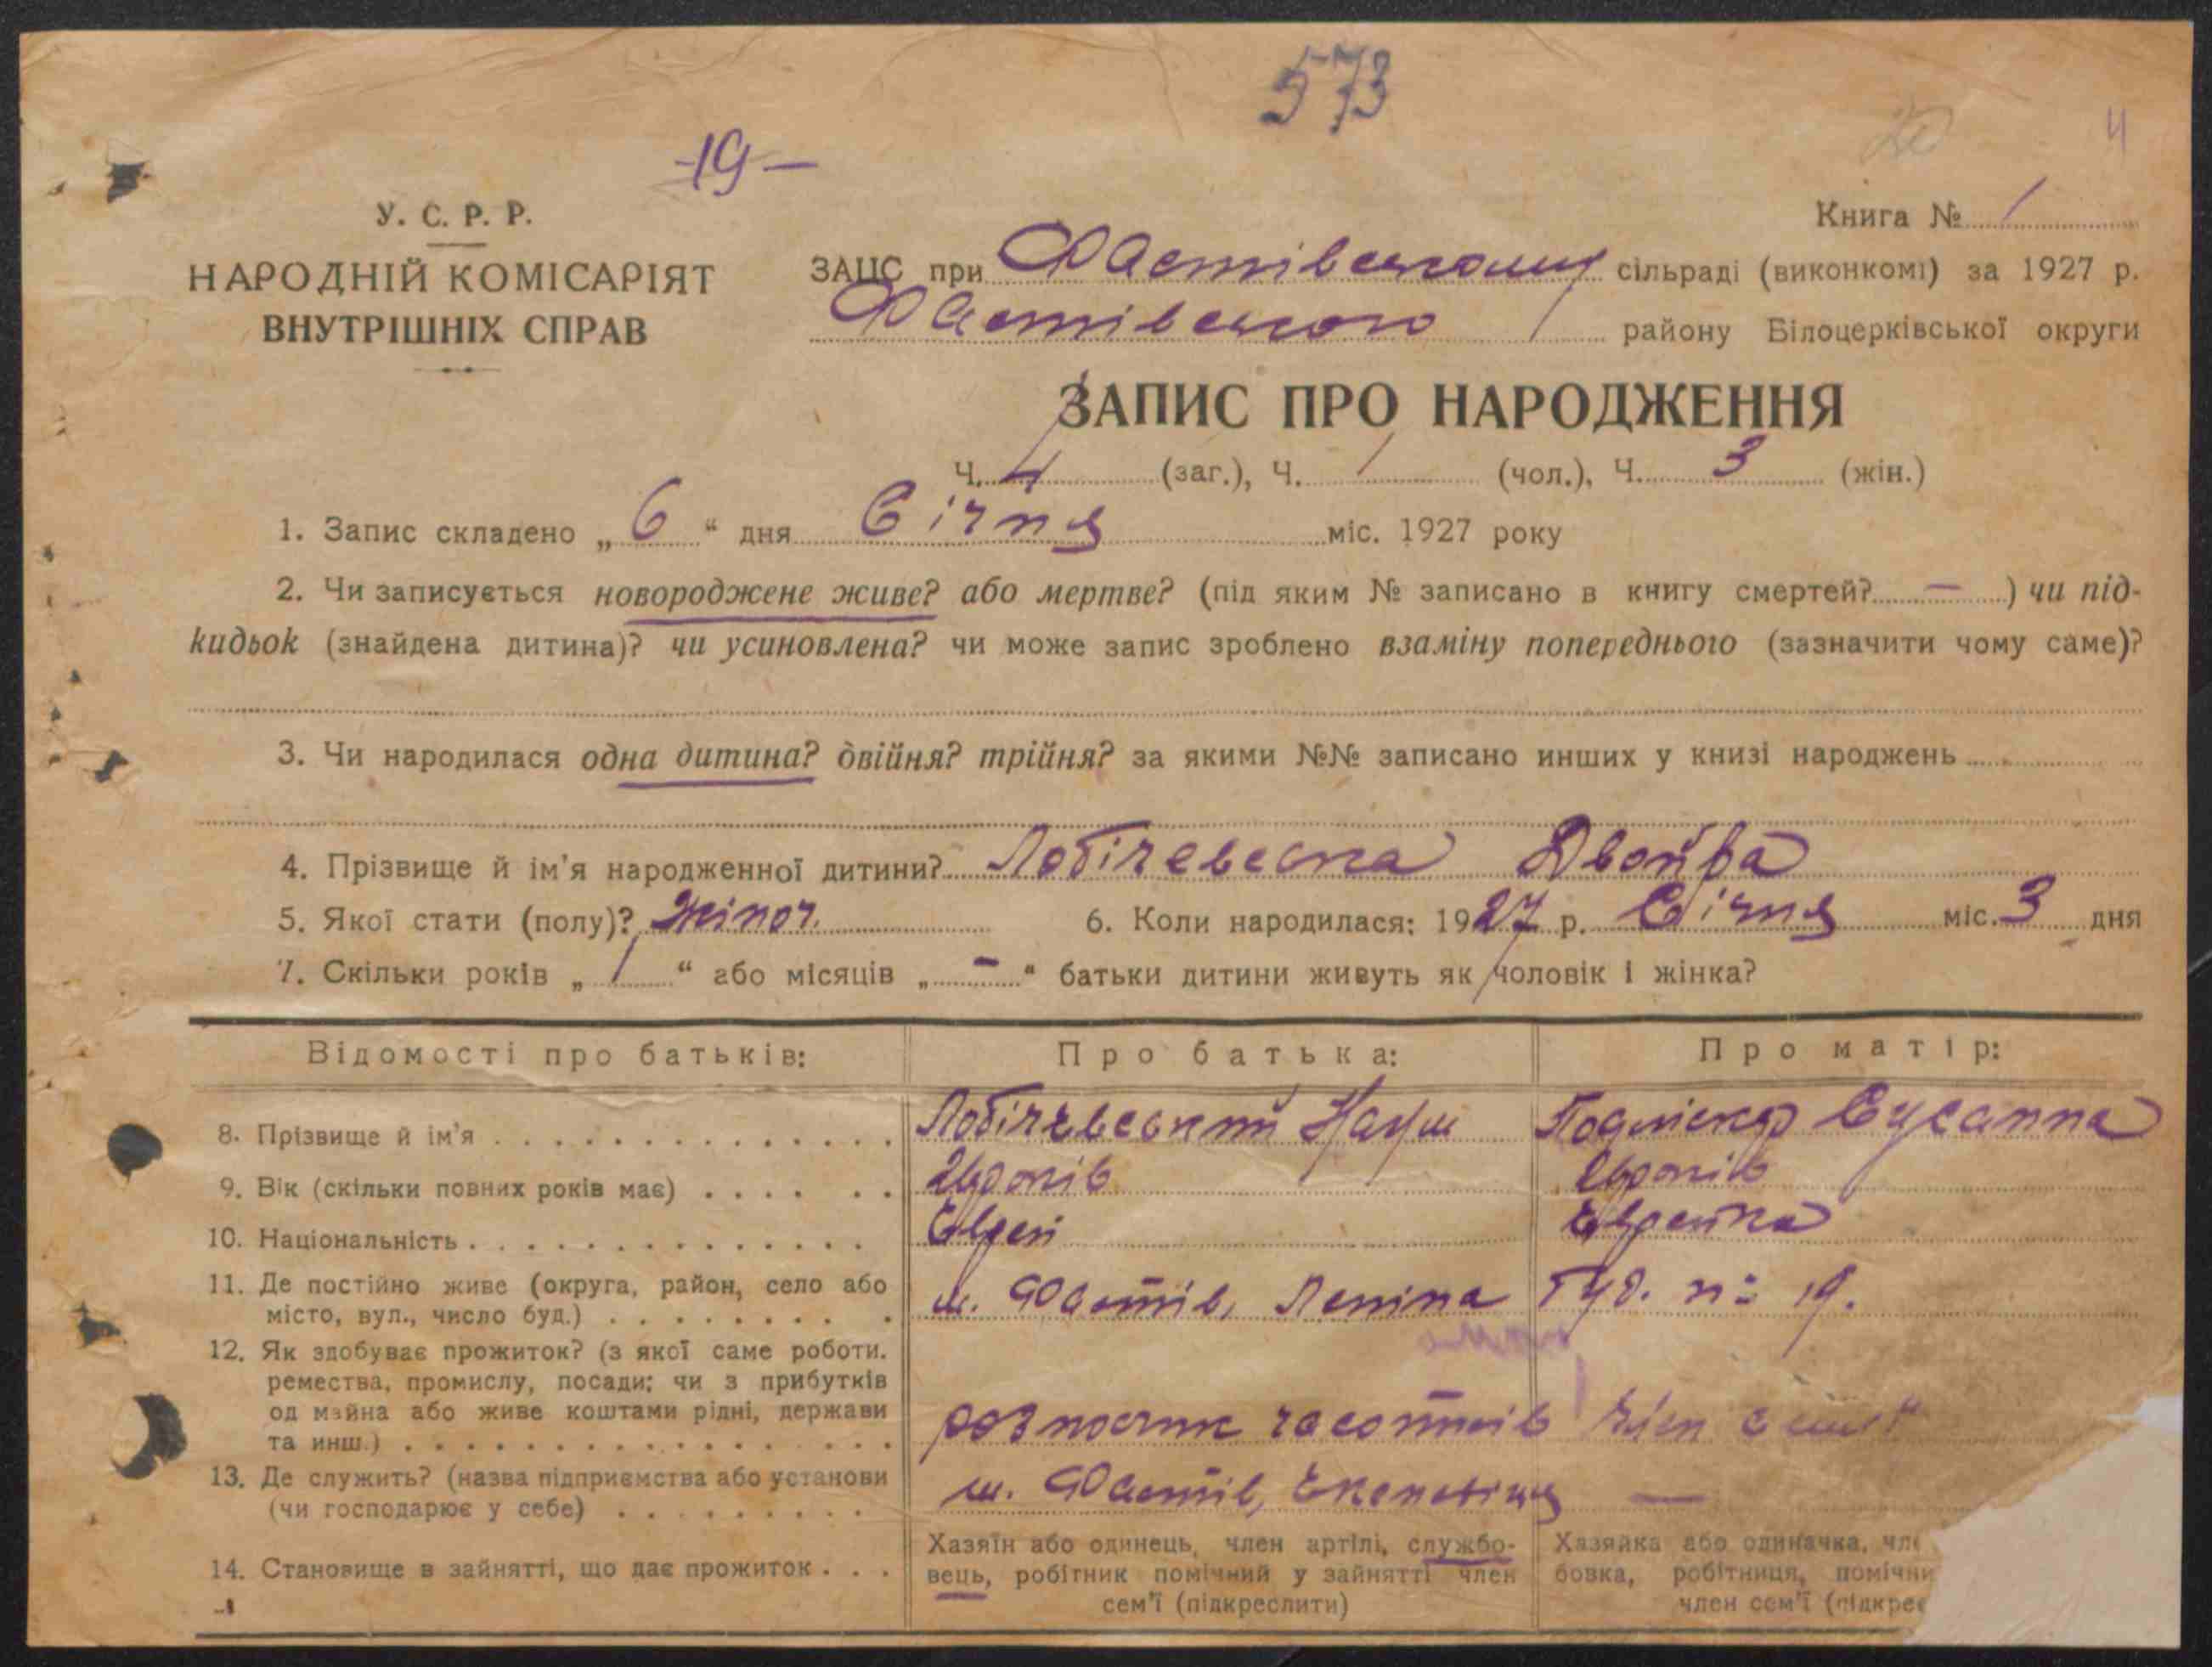 573
-19-
4
У. С. Р. Р.
НАРОДНІЙ КОМІСАРІЯТ
ВНУТРІШНІХ СПРАВ
Книга № 1
ЗАЦС при Фастівському сільраді (виконкомі) за 1927 р.
Фастівського району Білоцерківської округи
ЗАПИС ПРО НАРОДЖЕННЯ
Ч. 4 (заг.), Ч. / (чол.), Ч. 3 (жін.)
1. Запис складено „6“ дня Січня міс. 1927 року
2. Чи записується новороджене живе? або мертве? (під яким № записано в книгу смертей? — ) чи під-
кидьок (знайдена дитина)? чи усиновлена? чи може запис зроблено взаміну попереднього (зазначити чому саме)?
3. Чи народилася одна дитина? двійня? трійня? за якими №№ записано инших у книзі народжень
4. Прізвище й ім'я народженної дитини? Лобічевська Двойра
5. Якої стати (полу)? Жіноч. 6. Коли народилася: 1927 р. Січня міс. 3 дня
7. Скільки років „ 1 “ або місяців „ - “ батьки дитини живуть як чоловік і жінка?
Відомості про батьків: Про батька: Про матір:
8. Прізвище й ім'я Лобічевський Наум Сусанна
9. Вік (скільки повних років має) років років
10. Національність Єврей Єврейка
11. Де постійно живе (округа, район, село або
місто, вул., число буд.) м. Фастів, Леніна буд. № 19.
12. Як здобуває прожиток? (з якої саме роботи.
ремества, промислу, посади; чи з прибутків
од майна або живе коштами рідні, держави
та инш.) розносчик часописів член сім'ї
13. Де служить? (назва підприємства або установи
(чи господарює у себе) м. Фастів, —
14. Становище в зайнятті, що дає прожиток
Хазяїн або одинець, член артілі, службо-
вець, робітник помічний у зайнятті член
сем'ї (підкреслити)
Хазяйка або одиначка, чле
бовка, робітниця, помічни
член сем'ї (підкрес